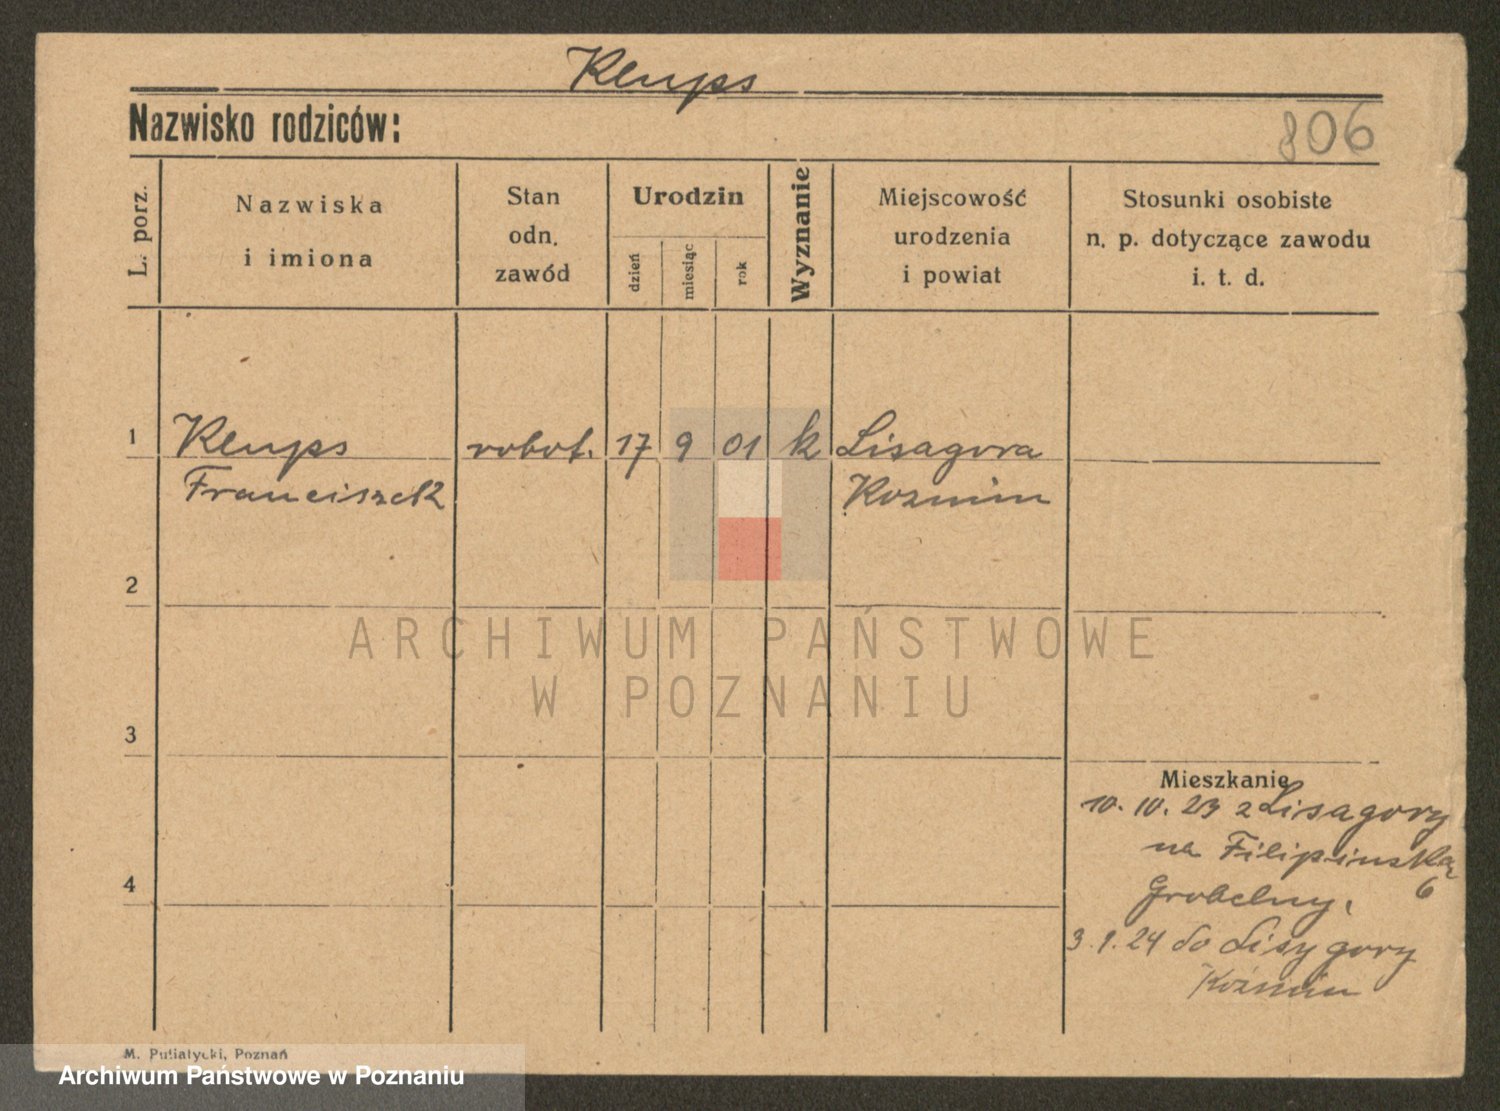 Kemps
Nazwisko rodziców:
806
L. porz.
Nazwiska
i imiona
Stan
odn.
zawód
Urodzin
dzień
miesiąc
rok
Wyznanie
Miejscowość
urodzenia
i powiat
Stosunki osobiste
n. p. dotyczące zawodu
i. t. d.
1
Kemps robot. 17 9 01 k Lisagora
Franciszek Kozmin
2
ARCHIWUM PAŃSTWOWE
W POZNANIU
3
Mieszkanie
10. 10. 23 z Lisagory
na Filipinska
6
Grobelny,
4
3. 1. 24 do Lisy gory
Koźmin
M. Putiatycki, Poznań
Archiwum Państwowe w Poznaniu